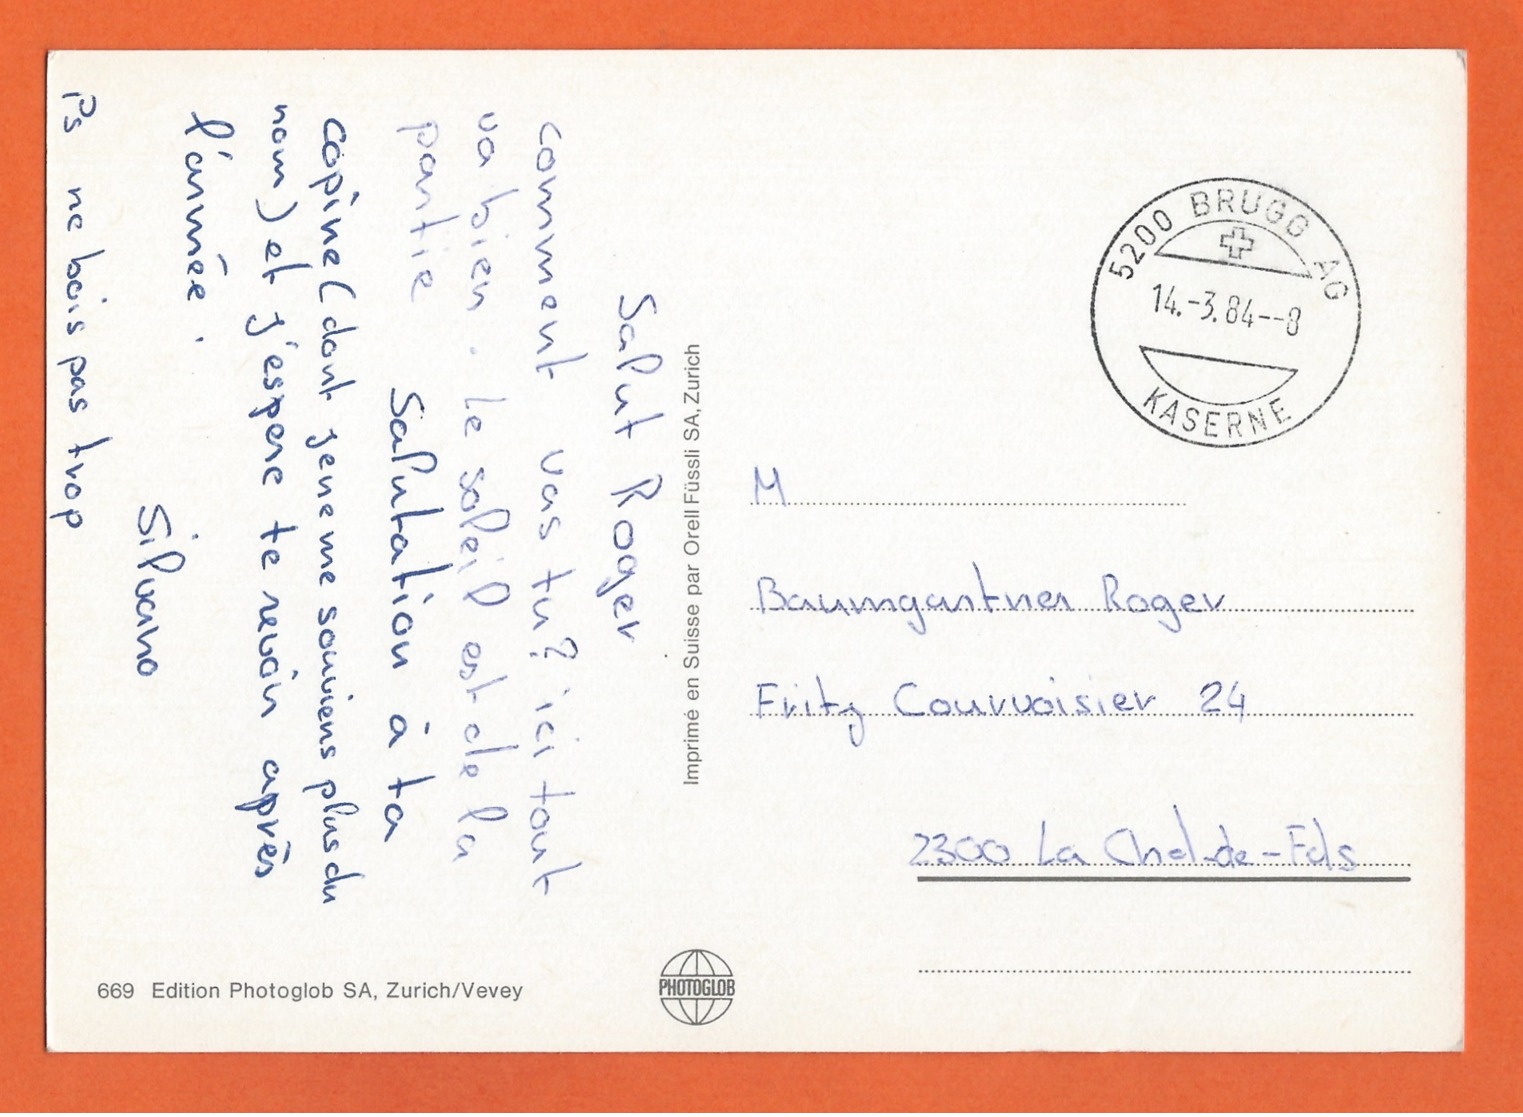 Salut Roger
comment vas tu? ici tout
va bien. Le soleil est de la
partie Salutation à ta
copine (dont je ne me souviens plus du
nom) et j'espere te revoir après
l'année.
Silvano
Ps ne bois pas trop
Imprimé en Suisse par Orell Füssli SA, Zurich
5200 BRUGG AG
14.-3.84--8
KASERNE
M
Baumgartner Roger
Fritz Courvoisier 24
2300 La Chd-de-Fds
669 Edition Photoglob SA, Zurich/Vevey
PHOTOGLOB